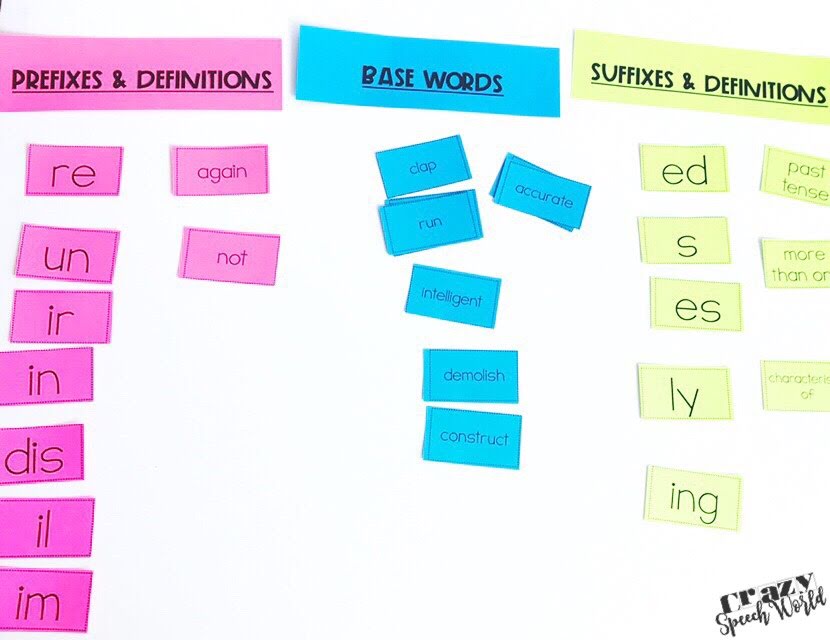 PREFIXES & DEFINITIONS
re
again
un
not
ir
in
dis
il
im
BASE WORDS
clap
accurate
run
intelligent
demolish
construct
SUFFIXES & DEFINITIONS
ed
past
tense
s
more
than on
es
ly
characteris
of
ing
crazy
Speech World